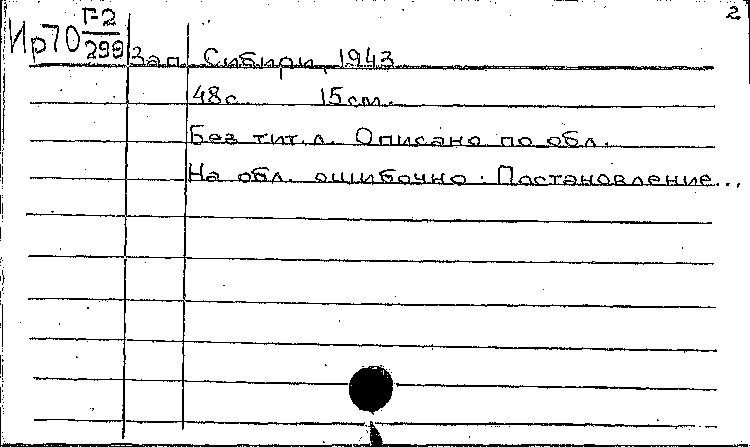 2
Ир70 Г-2/299
Зап. Сибири, 1943.
48с. 15см.
Без тит.л. Описано по обл.
На обл. ошибочно: Постановление...